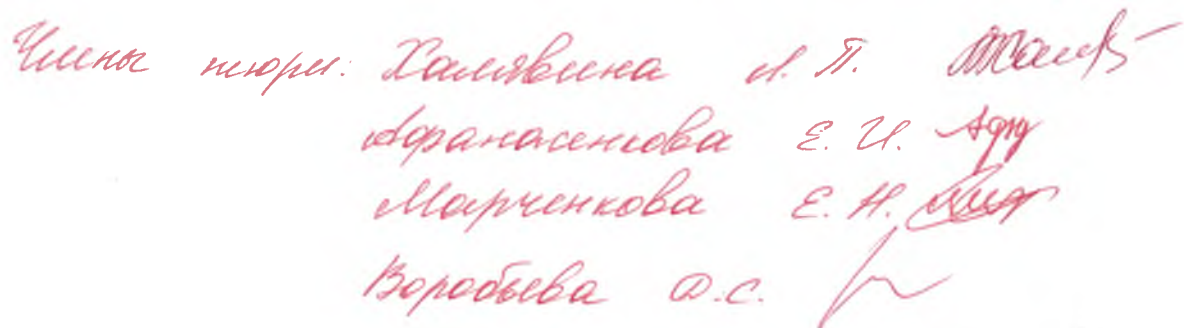 Члены жюри: Халявина Л. П.
Афанасенкова Е. И.
Марченкова Е. Н.
Воробьева Д.С.